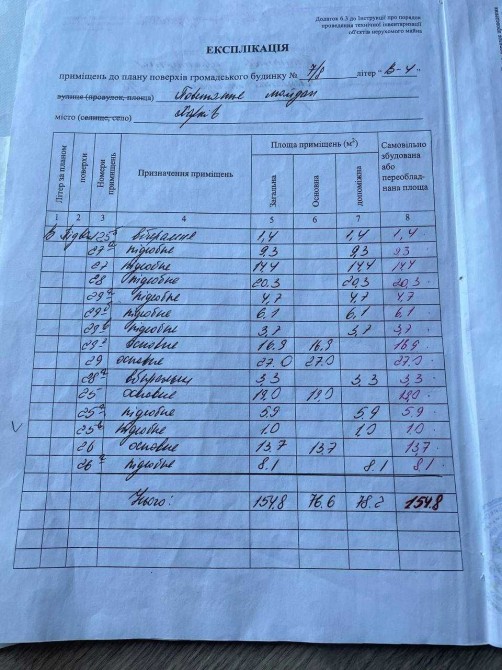 Додаток 6.3 до Інструкції про порядок
проведення технічної інвентаризації
об'єктів нерухомого майна
ЕКСПЛІКАЦІЯ
приміщень до плану поверхів громадського будинку № 7/8 літер "В-4"
вулиця (провулок, площа) Павлівський майдан
місто (селище, село) Харків
Літер за планом поверхи Номери приміщень Призначення приміщень Площа приміщень (м²) Самовільно збудована або переобладнана площа
Загальна Основна допоміжна
1 2 3 4 5 6 7 8
В підвал 25б вбиральня 1,4 1,4 1,4
27а підсобне 9,3 9,3 9,3
27 підсобне 14,4 14,4 14,4
28 підсобне 20,3 20,3 20,3
29д підсобне 4,7 4,7 4,7
29б підсобне 6,1 6,1 6,1
29в підсобне 3,7 3,7 3,7
29г основне 16,9 16,9 16,9
29 основне 27.0 27.0 27.0
28а вбиральня 3,3 3,3 3,3
25 основне 19,0 19,0 19,0
25а підсобне 5,9 5,9 5,9
25в підсобне 1,0 1,0 1,0
26 основне 13,7 13,7 13,7
26а підсобне 8.1 8.1 8.1
Усього: 154.8 76.6 78.2 154.8